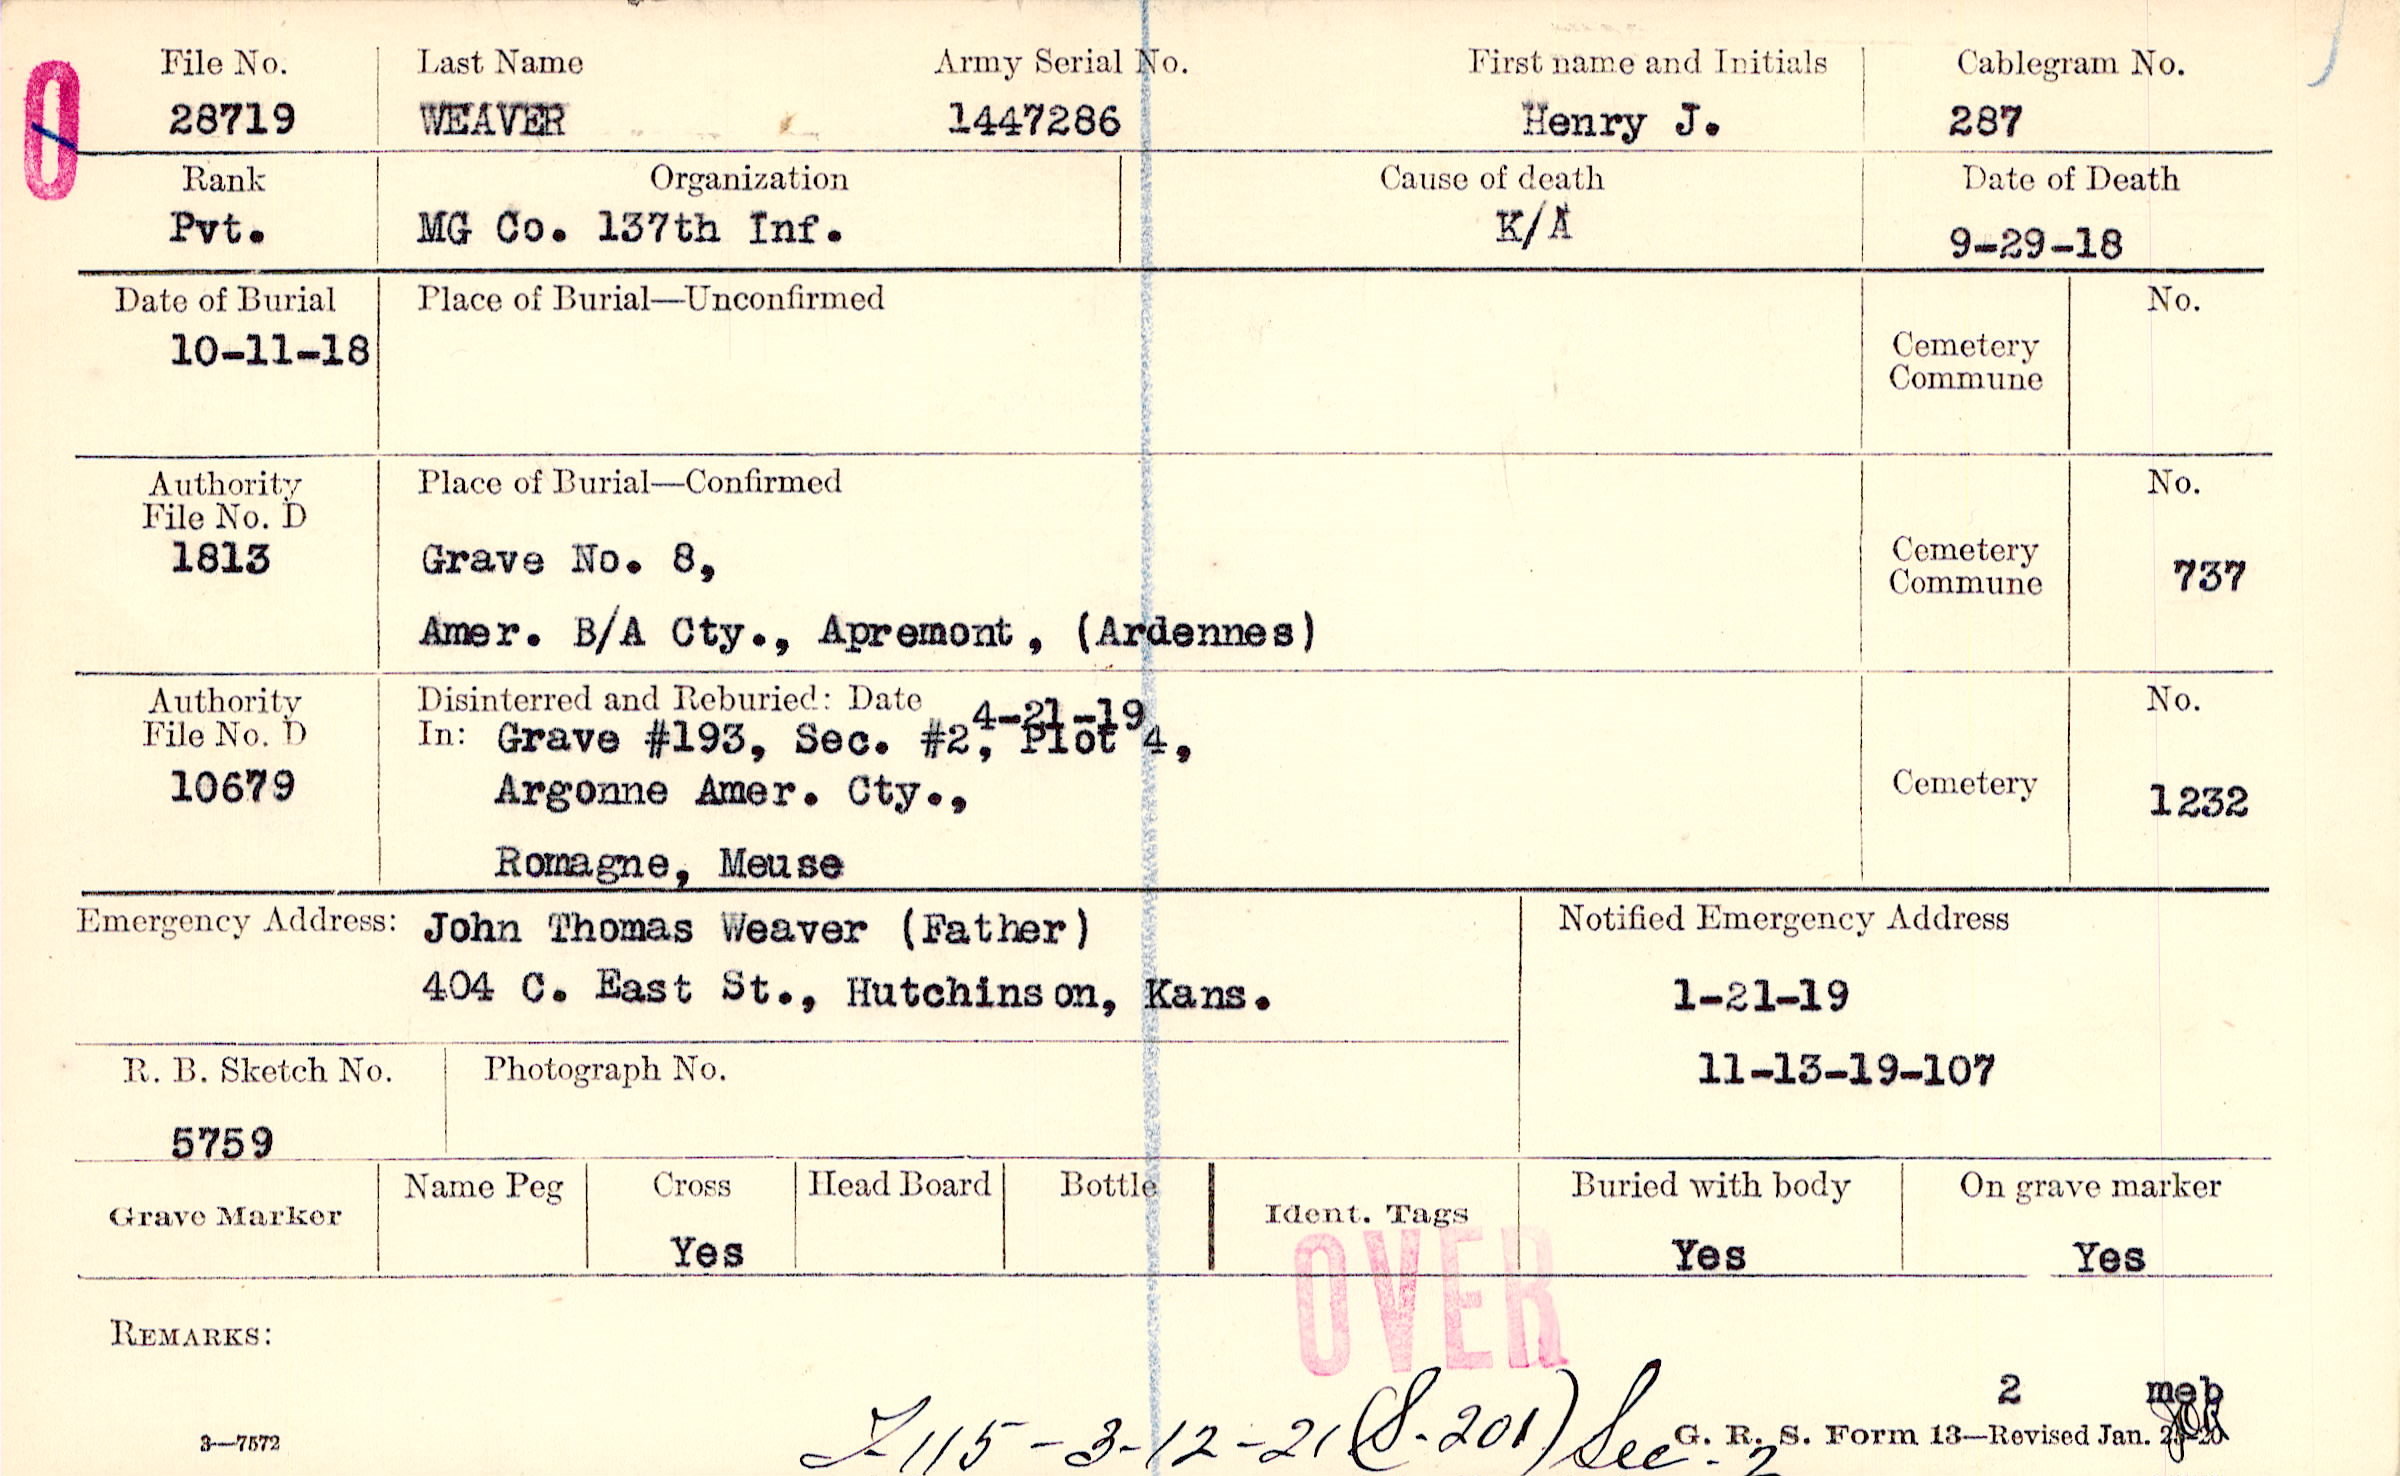 File No. Last Name Army Serial No. First name and Initials Cablegram No.
28719 WEAVER 1447286 Henry J. 287
Rank Organization Cause of death Date of Death
Pvt. MG Co. 137th Inf. K/A 9-29-18
Date of Burial Place of Burial—Unconfirmed No.
10-11-18
Cemetery
Commune
Authority Place of Burial—Confirmed No.
File No. D
1813 Grave No. 8, Cemetery
Commune 737
Amer. B/A Cty., Apremont, (Ardennes)
Authority Disinterred and Reburied: Date 4-21-19 No.
File No. D In: Grave #193, Sec. #2, Plot 4,
10679 Argonne Amer. Cty., Cemetery 1232
Romagne, Meuse
Emergency Address: John Thomas Weaver (Father) Notified Emergency Address
404 C. East St., Hutchinson, Kans. 1-21-19
R. B. Sketch No. Photograph No. 11-13-19-107
5759
Name Peg Cross Head Board Bottle Buried with body On grave marker
Grave Marker Ident. Tags
Yes Yes Yes
OVER
REMARKS:
2 meb
3—7572 115-3-12-21 (S-201) Sec. 2 G. R. S. Form 13—Revised Jan.